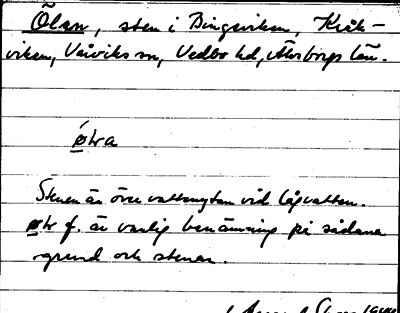 Ölan, sten i Bingsviken, Kråk-
viken, Valviks sn, Vedbo hd, Älvsborgs län.
øtra
Stenen är över vattenytan vid lågvatten.
øtr f. är vanlig benämning på sådana
grund och stenar.